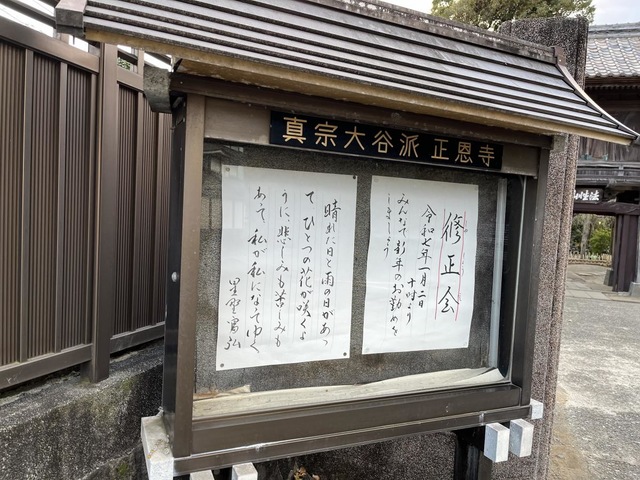 真宗大谷派 正恩寺
修正会
令和七年一月二日
十時より
みんなで新年のお勤めを
しましょう
晴れた日と雨の日があっ
て ひとつの花が咲くよ
うに、悲しみも苦しみも
あって 私が私になってゆく
星野富弘